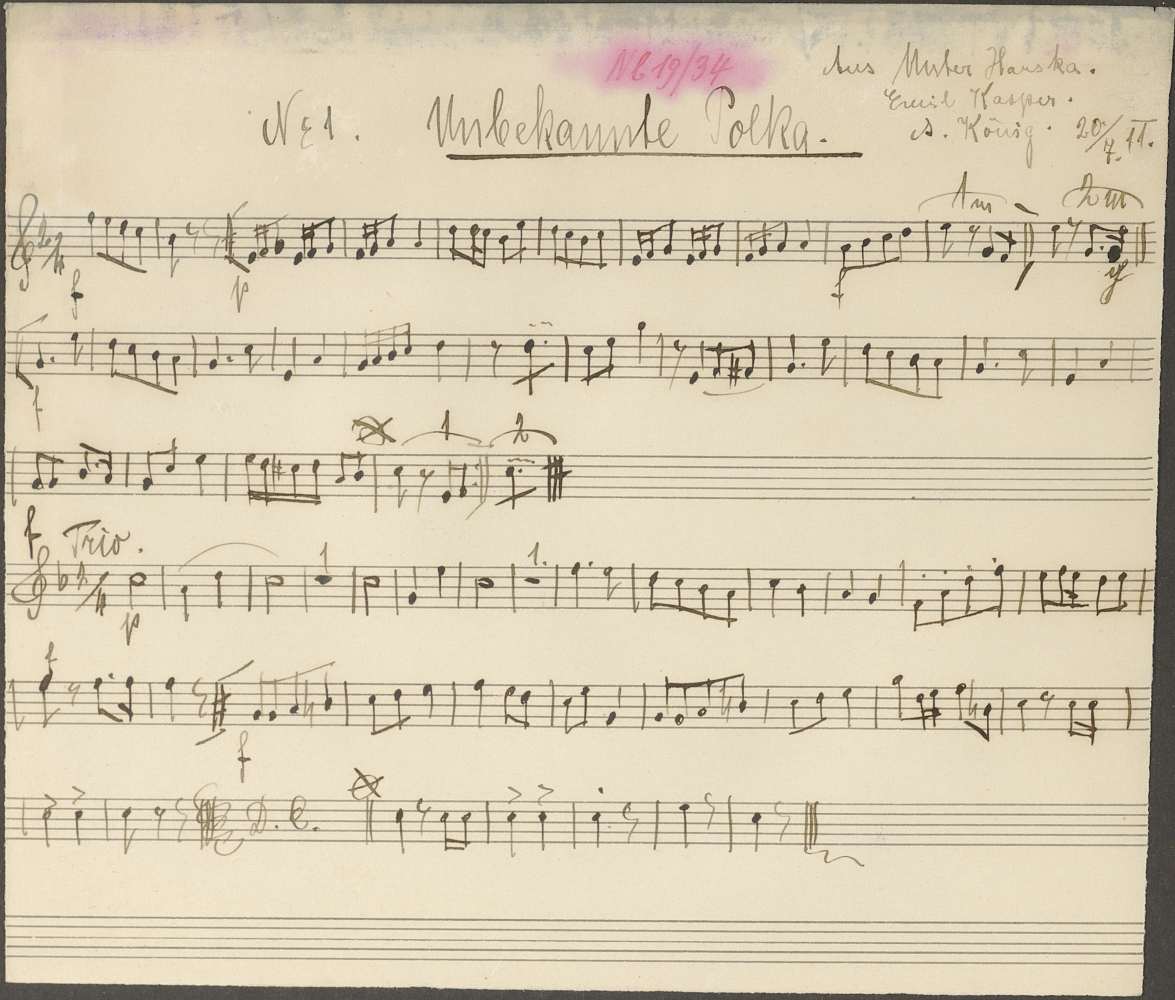 NB 19/34
Aus Unter Hanska.
Emil Kasper.
A. König. 20/7. 11.
No 1. Unbekannte Polka.
1m 2m
f p f
f
1 2
f Trio.
1 1.
p
f
f
D. C.